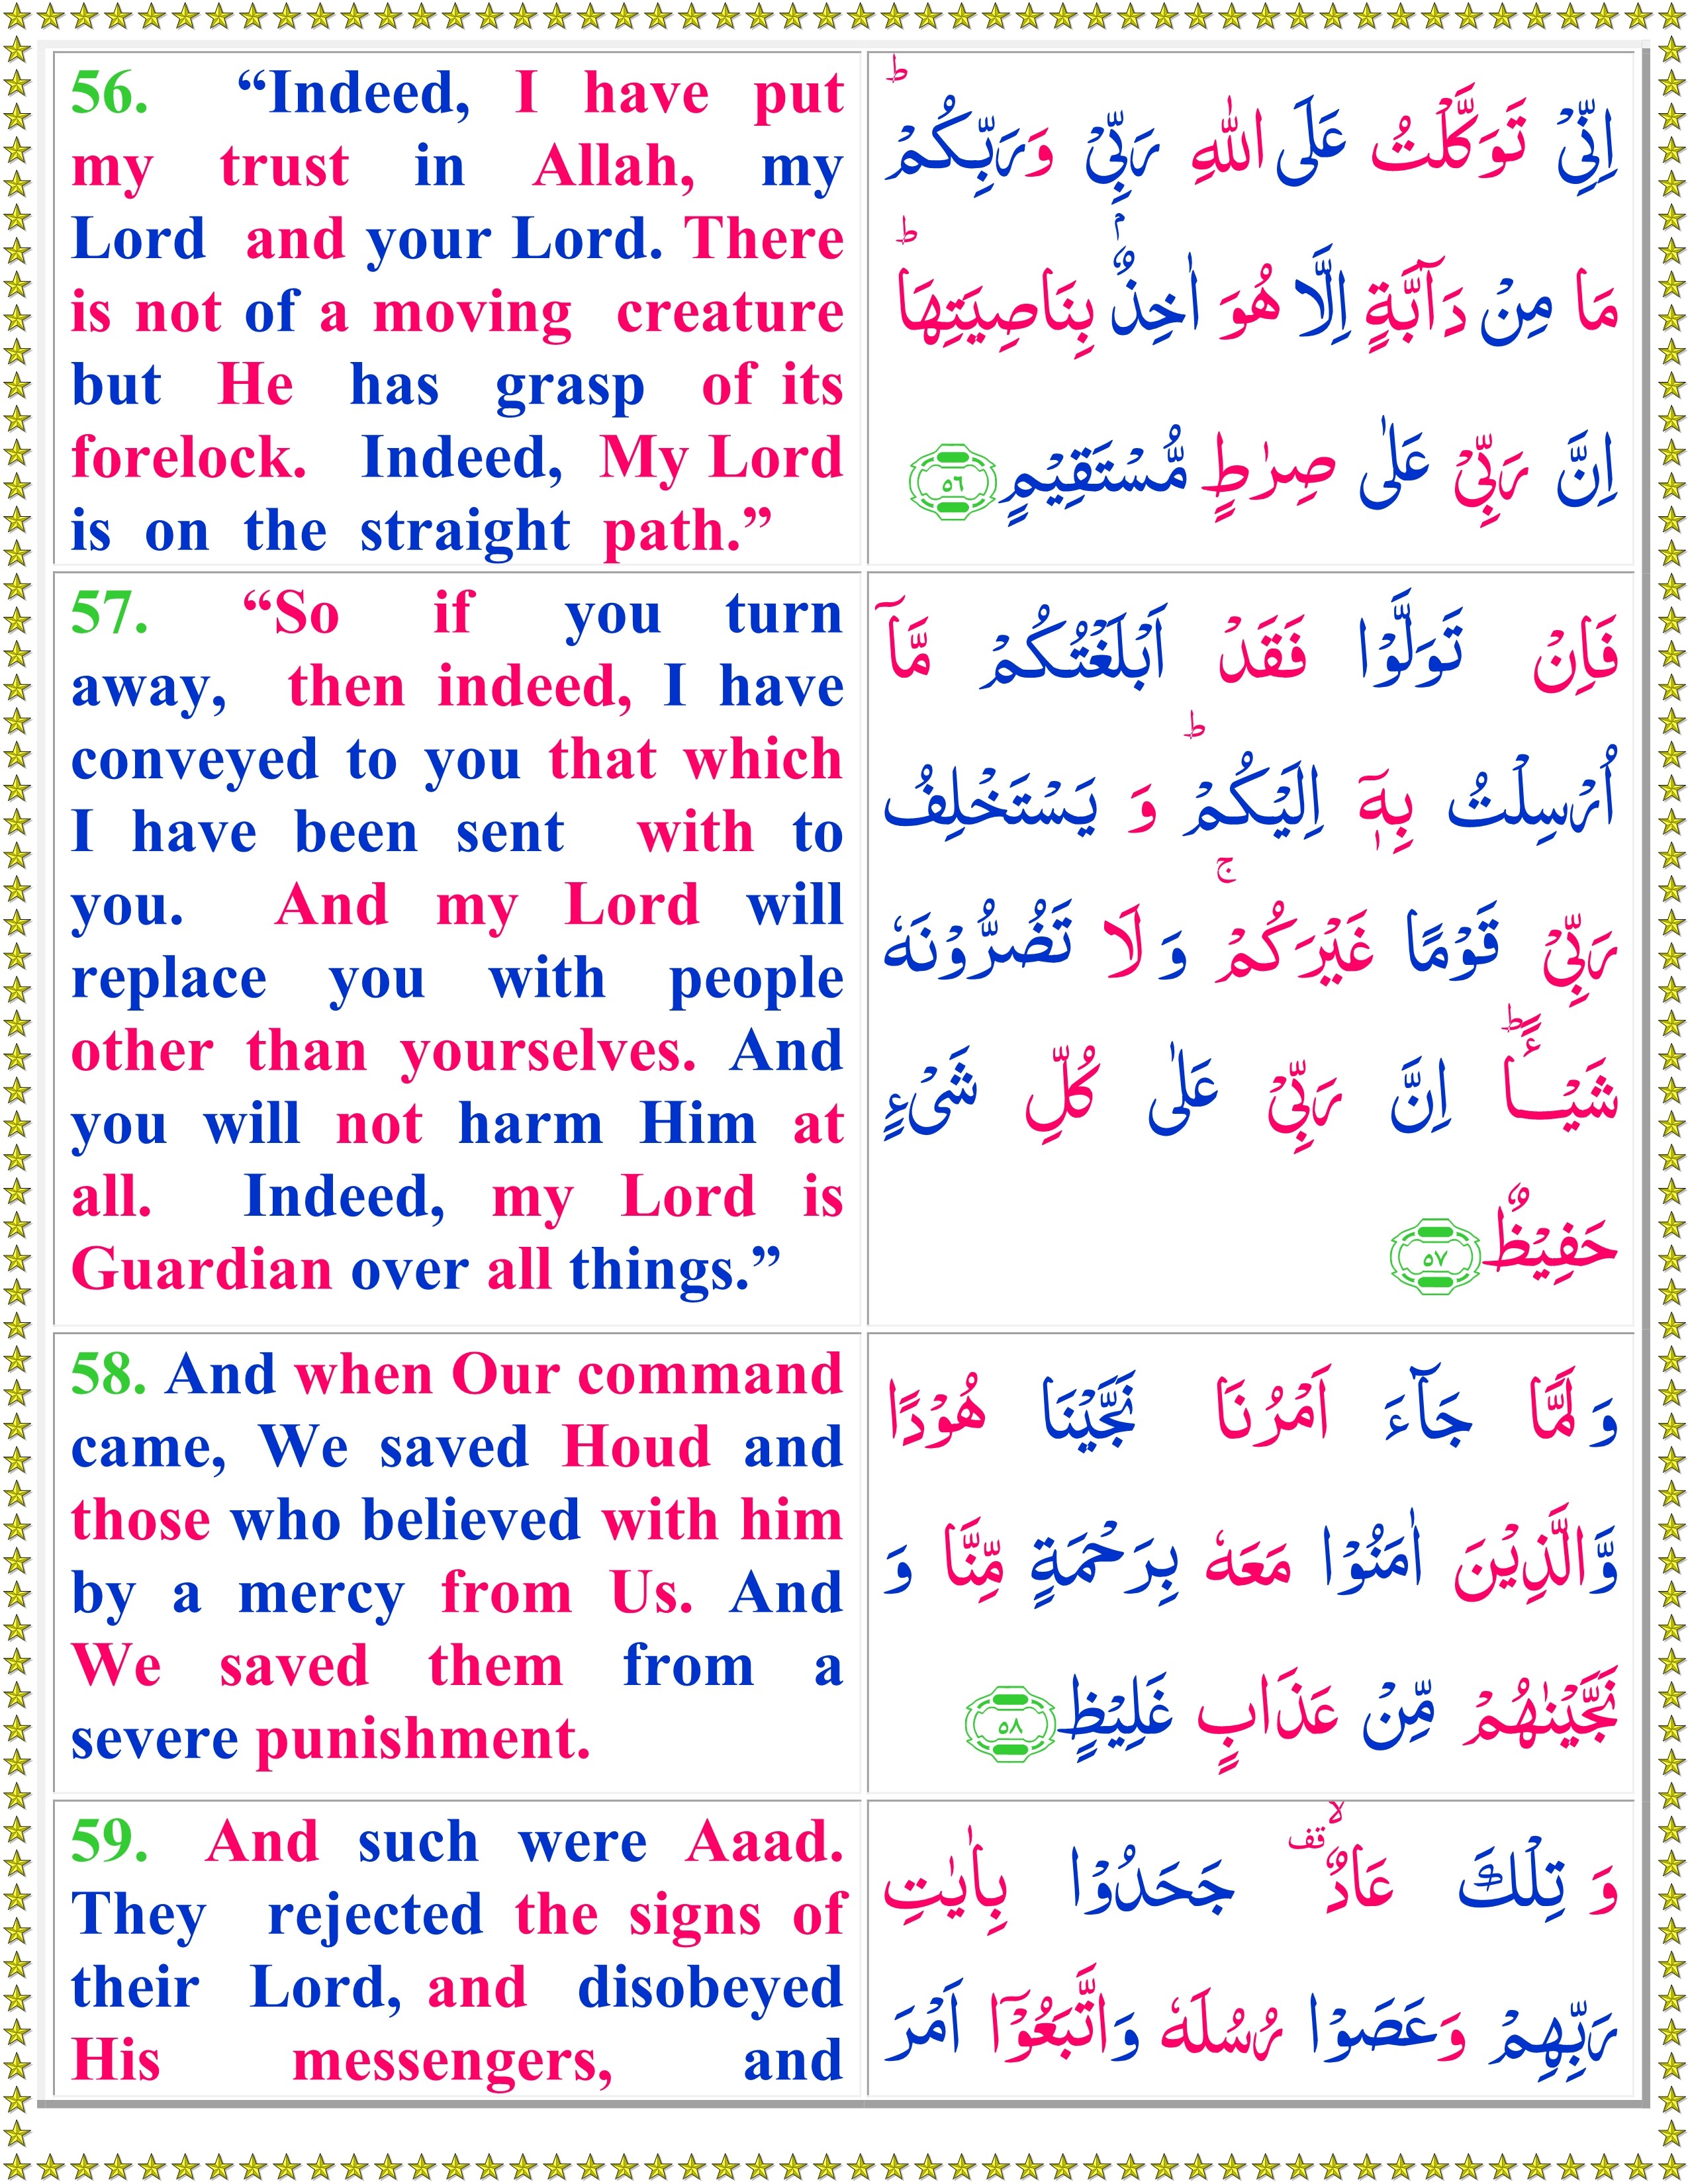 56. “Indeed, I have put
my trust in Allah, my
Lord and your Lord. There
is not of a moving creature
but He has grasp of its
forelock. Indeed, My Lord
is on the straight path.”
اِنِّىْ تَوَكَّلْتُ عَلَى اللّٰهِ رَبِّىْ وَرَبِّكُمْ ؕ
مَا مِنْ دَآبَّةٍ اِلَّا هُوَ اٰخِذٌۢ بِنَاصِيَتِهَا ؕ
اِنَّ رَبِّىْ عَلٰى صِرٰطٍ مُّسْتَقِيْمٍ ٥٦
57. “So if you turn
away, then indeed, I have
conveyed to you that which
I have been sent with to
you. And my Lord will
replace you with people
other than yourselves. And
you will not harm Him at
all. Indeed, my Lord is
Guardian over all things.”
فَاِنْ تَوَلَّوْا فَقَدْ اَبْلَغْتُكُمْ مَّاۤ
اُرْسِلْتُ بِهٖۤ اِلَيْكُمْ ؕ وَ يَسْتَخْلِفُ
رَبِّىْ قَوْمًا غَيْرَكُمْ ۚ وَ لَا تَضُرُّوْنَهٗ
شَيْـــًٔا ؕ اِنَّ رَبِّىْ عَلٰى كُلِّ شَىْءٍ
حَفِيْظٌ ٥٧
58. And when Our command
came, We saved Houd and
those who believed with him
by a mercy from Us. And
We saved them from a
severe punishment.
وَ لَمَّا جَآءَ اَمْرُنَا نَجَّيْنَا هُوْدًا
وَّالَّذِيْنَ اٰمَنُوْا مَعَهٗ بِرَحْمَةٍ مِّنَّا وَ
نَجَّيْنٰهُمْ مِّنْ عَذَابٍ غَلِيْظٍ ٥٨
59. And such were Aaad.
They rejected the signs of
their Lord, and disobeyed
His messengers, and
وَ تِلْكَ عَادٌ ۙقف جَحَدُوْا بِاٰيٰتِ
رَبِّهِمْ وَعَصَوْا رُسُلَهٗ وَاتَّبَعُوْۤا اَمْرَ